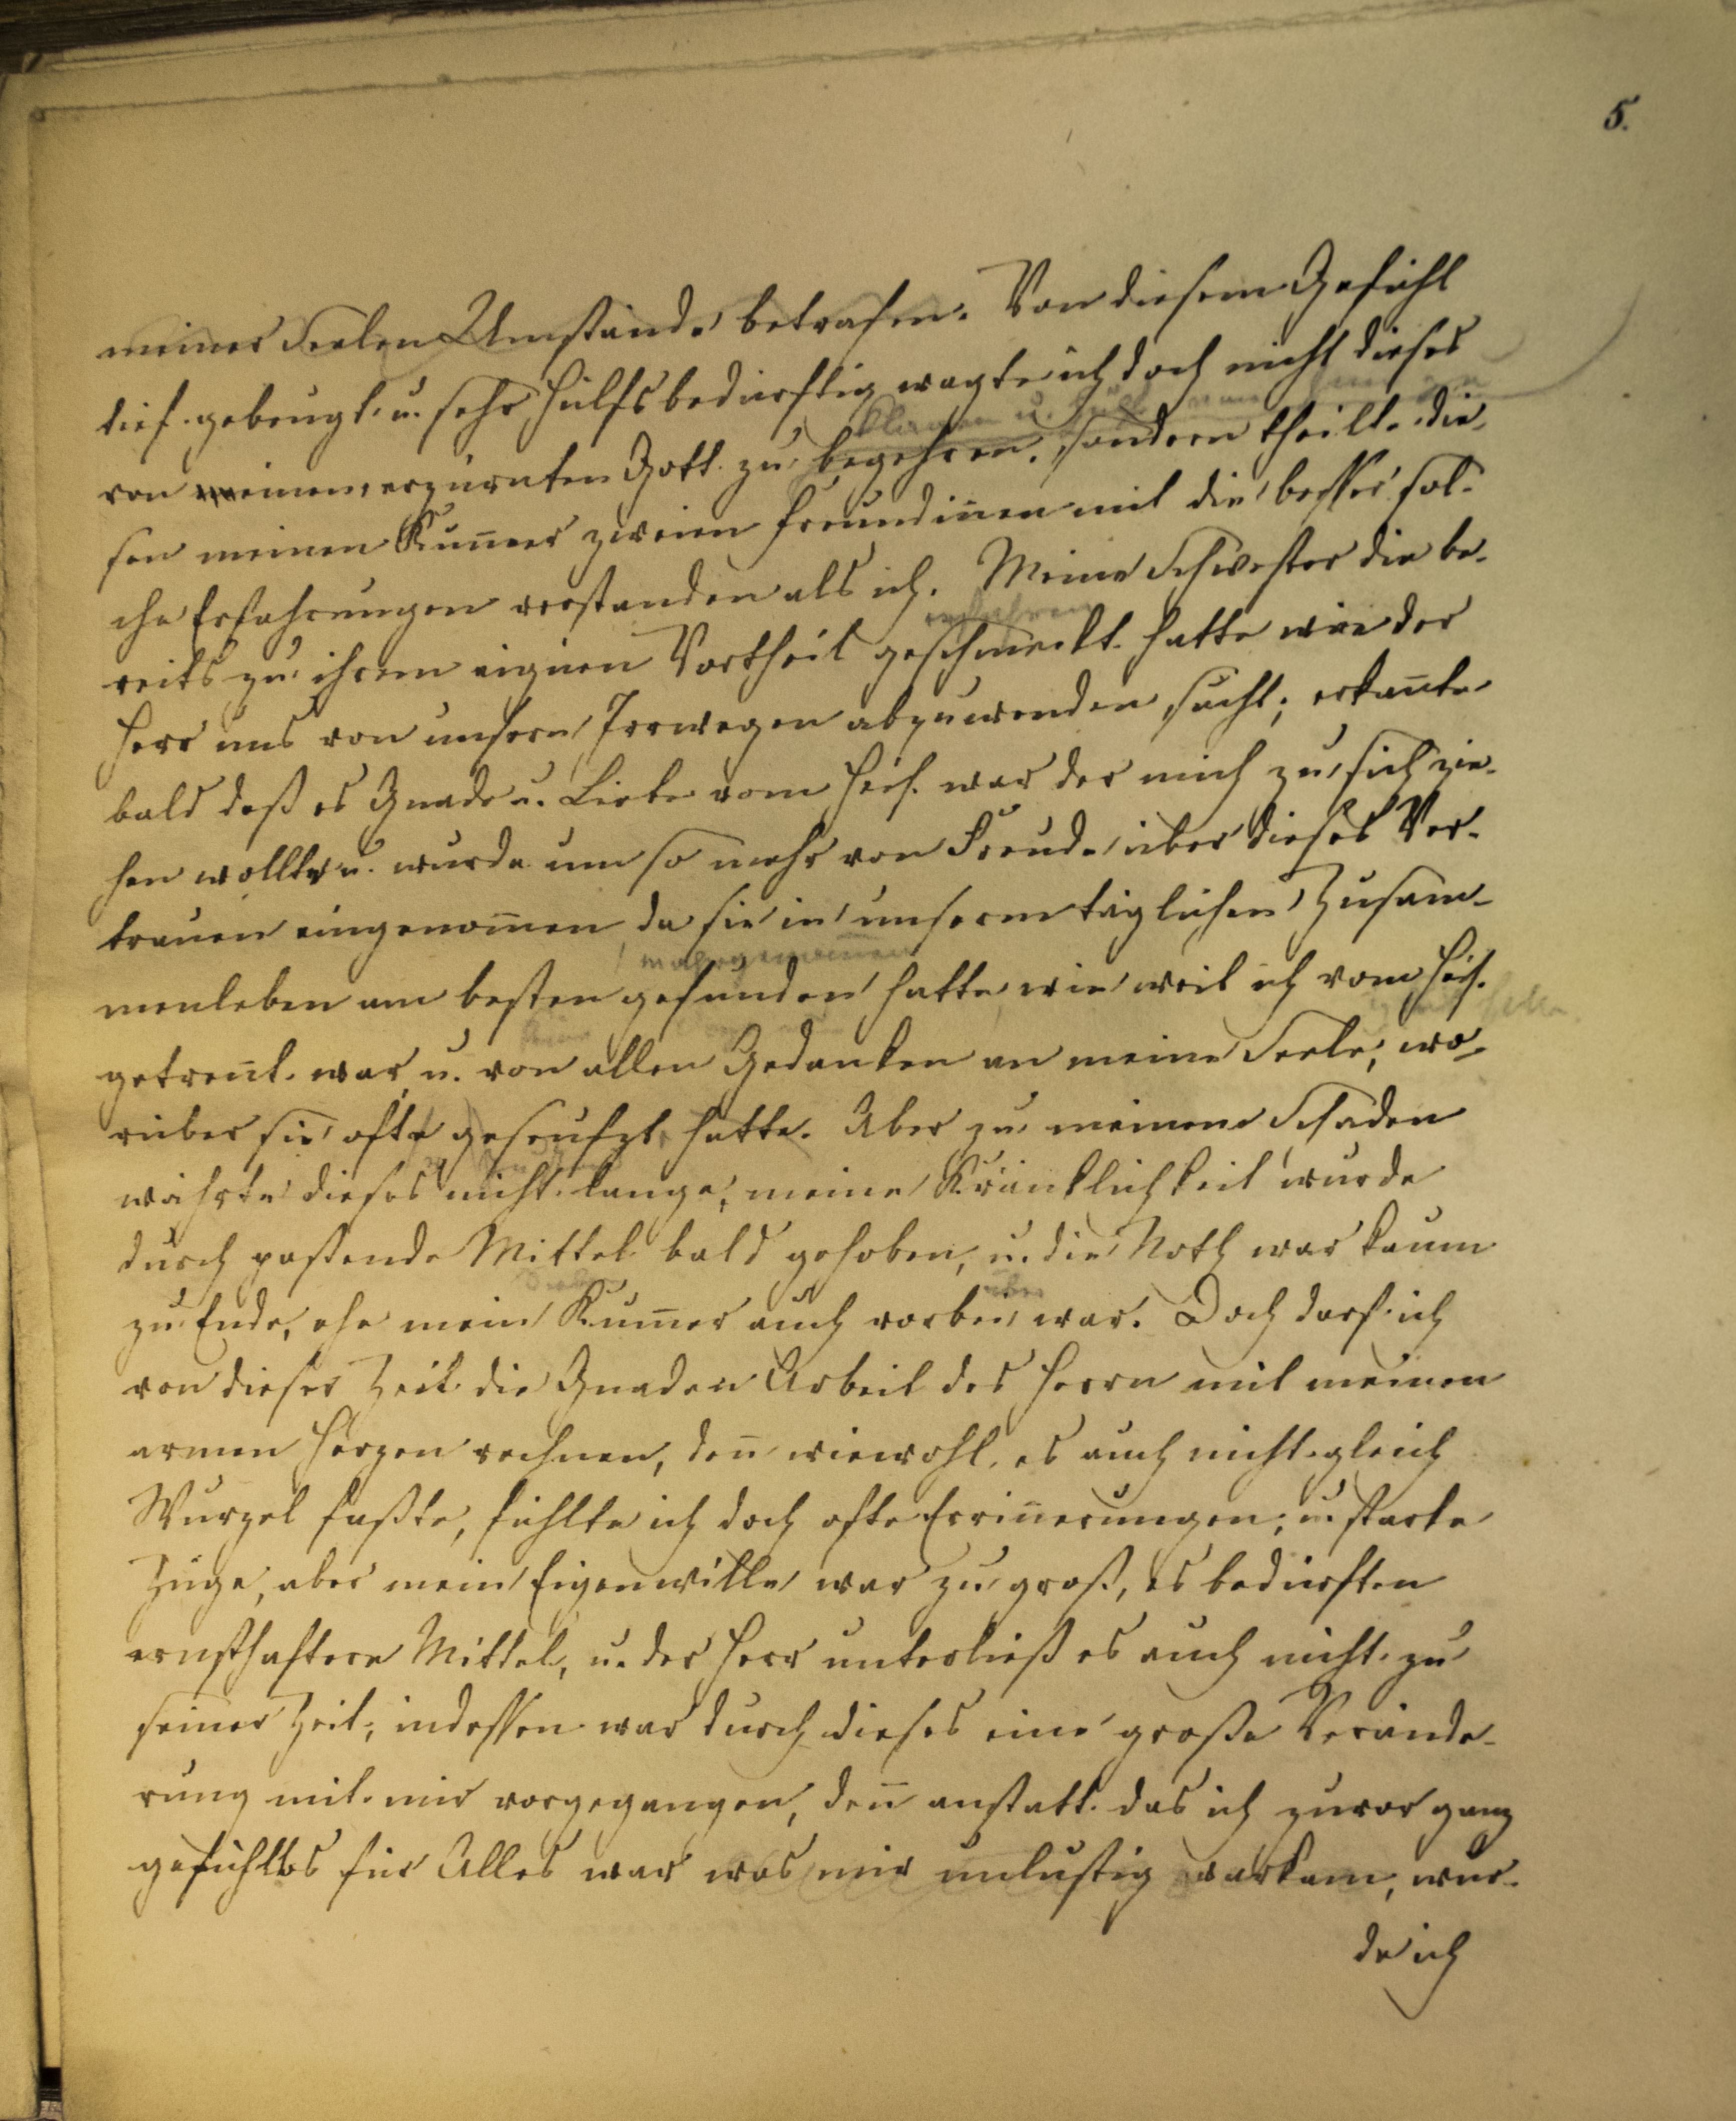 5.
meiner Seelen Umstände betrafen. Von diesem Gefühl
tief gebeugt u. sehr hülfsbedürftig wagte ich doch nicht dieses
klagen u.
von einem erzürnten Gott zu begehren, sondern theilte die-
sen meinen Kum̄er zweien Freundin̄en mit die besser sol-
che Erfahrungen verstanden als ich. Meine Schwester die be-
erfahren
reits zu ihrem eignen Vortheil geschmeckt hatte wie der
Herr uns von unsern Irrwegen abzuwenden sucht; erkan̄te
bald daß es Gnade u. Liebe vom Heil. war der mich zu sich zie-
hen wollte u. wurde um so mehr von Freude über dieses Ver-
trauen eingenom̄en da sie in unserm täglichen Zusam-
wahrgenom̄en
menleben am besten gefunden hatte wie weit ich vom Heil.
getren̄t war u. von allen Gedanken an meine Seele, wo-
rüber sie ofte geseufzt hatte. Aber zu meinem Schaden
währte dieses nicht lange, meine Kränklichkeit wurde
durch paßende Mittel bald gehoben, u. die Noth war kaum
über
zu Ende, ehe mein Kum̄er auch vorbei war. Doch darf ich
von dieser Zeit die Gnaden Arbeit des Herrn mit meinen
armen Herzen rechnen, den̄ wiewohl es auch nicht gleich
Wurzel faßte, fühlte ich doch ofte Errin̄erungen, u. starke
Züge, aber mein Eigenwille war zu groß, es bedürften
ernsthaftere Mittel, u. der Herr unterließ es auch nicht zu
seiner Zeit, indessen war durch dieses eine große Verände-
rung mit mir vorgegangen, den̄ anstatt das ich zuvor ganz
gefühllos für Alles war was mir unlustig varkam, wur-
de ich